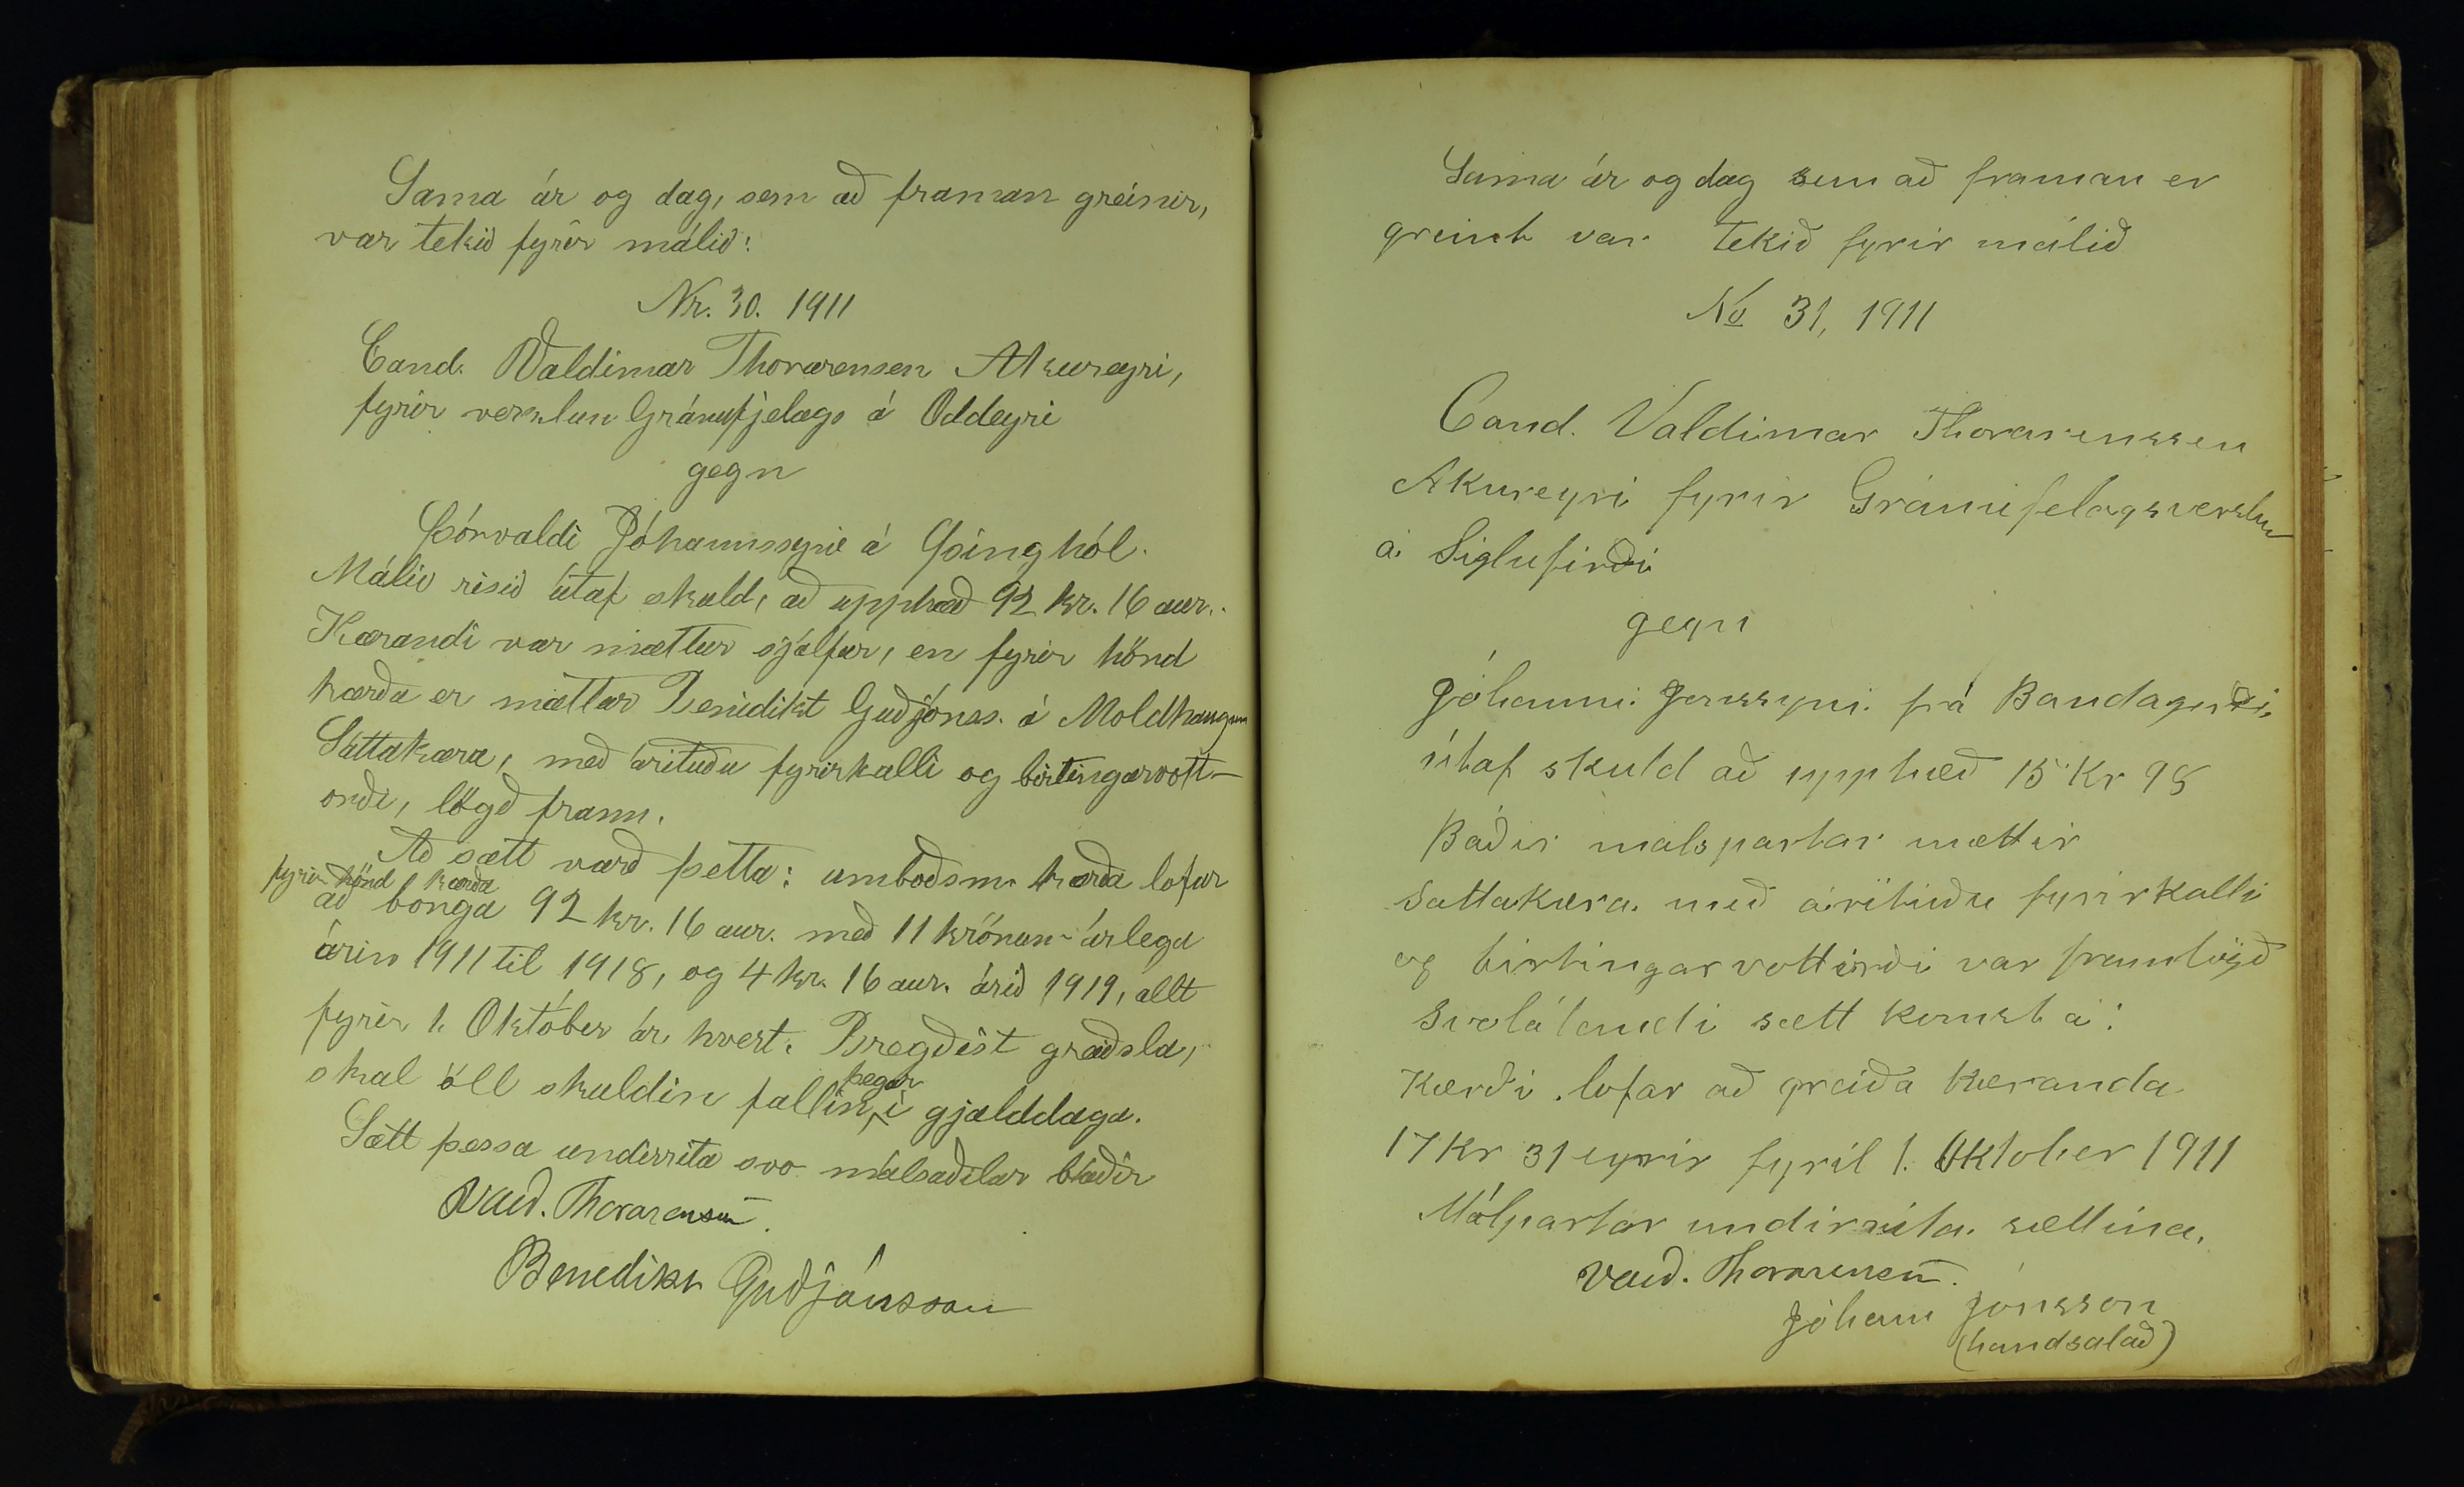 Sama ár og dag, sem að framan greinir,
var tekið fyrir málið:
Nr. 30. 1911
Cand. Valdimar Thorarensen Akureyri,
fyrir verslun Gránufjelags á Oddeyri
gegn
Þórvaldi Jóhannssyni á Þinghól.
Málið risið útaf skuld, að upphæð 92 kr. 16 aur.
Kærandi var mættur sjálfur, en fyrir hönd
kærða er mættur Benidikt Guðjónss. á Moldhaugum
Sáttakæra, með árituðu fyrirkalli og birtingarvott-
orði, lögð fram.
Að sætt varð þetta: umboðsm. kærða lofar
fyrir hönd kærða
að borga 92 kr. 16 aur. með 11 krónum árlega
árin 1911 til 1918, og 4 kr. 16 aur. árið 1919, allt
fyrir 1. Október ár hvert. Bregðist greiðsla,
skal öll skuldin fallin þegar í gjalddaga.
Sætt þessa undirrita svo málsaðilar báðir
Vald. Thorarensen.
Benedikt Guðjónsson
Sama ár og dag sem að framan er
greint var tekið fyrir málið
No 31, 1911
Cand. Valdimar Thorarenssen
Akureyri fyrir Gránufelagsverslun
á Siglufirði
gegn
Jóhanni Jonssyni frá Bandagerði,
útaf skuld að upphæð 15 Kr 98
Báðir malspartar mættir
Sattakæra með árituðu fyrirkalli
og birtingarvottirði var framlögð
Svolátandi sætt komst á:
Kærði lofar að greiða kæranda
17 Kr 31 eyrir fyril 1. Oktober 1911
Málpartar undirrita sættina.
Vald. Thorarensen.
Jóhann Jónsson
(handsalað)